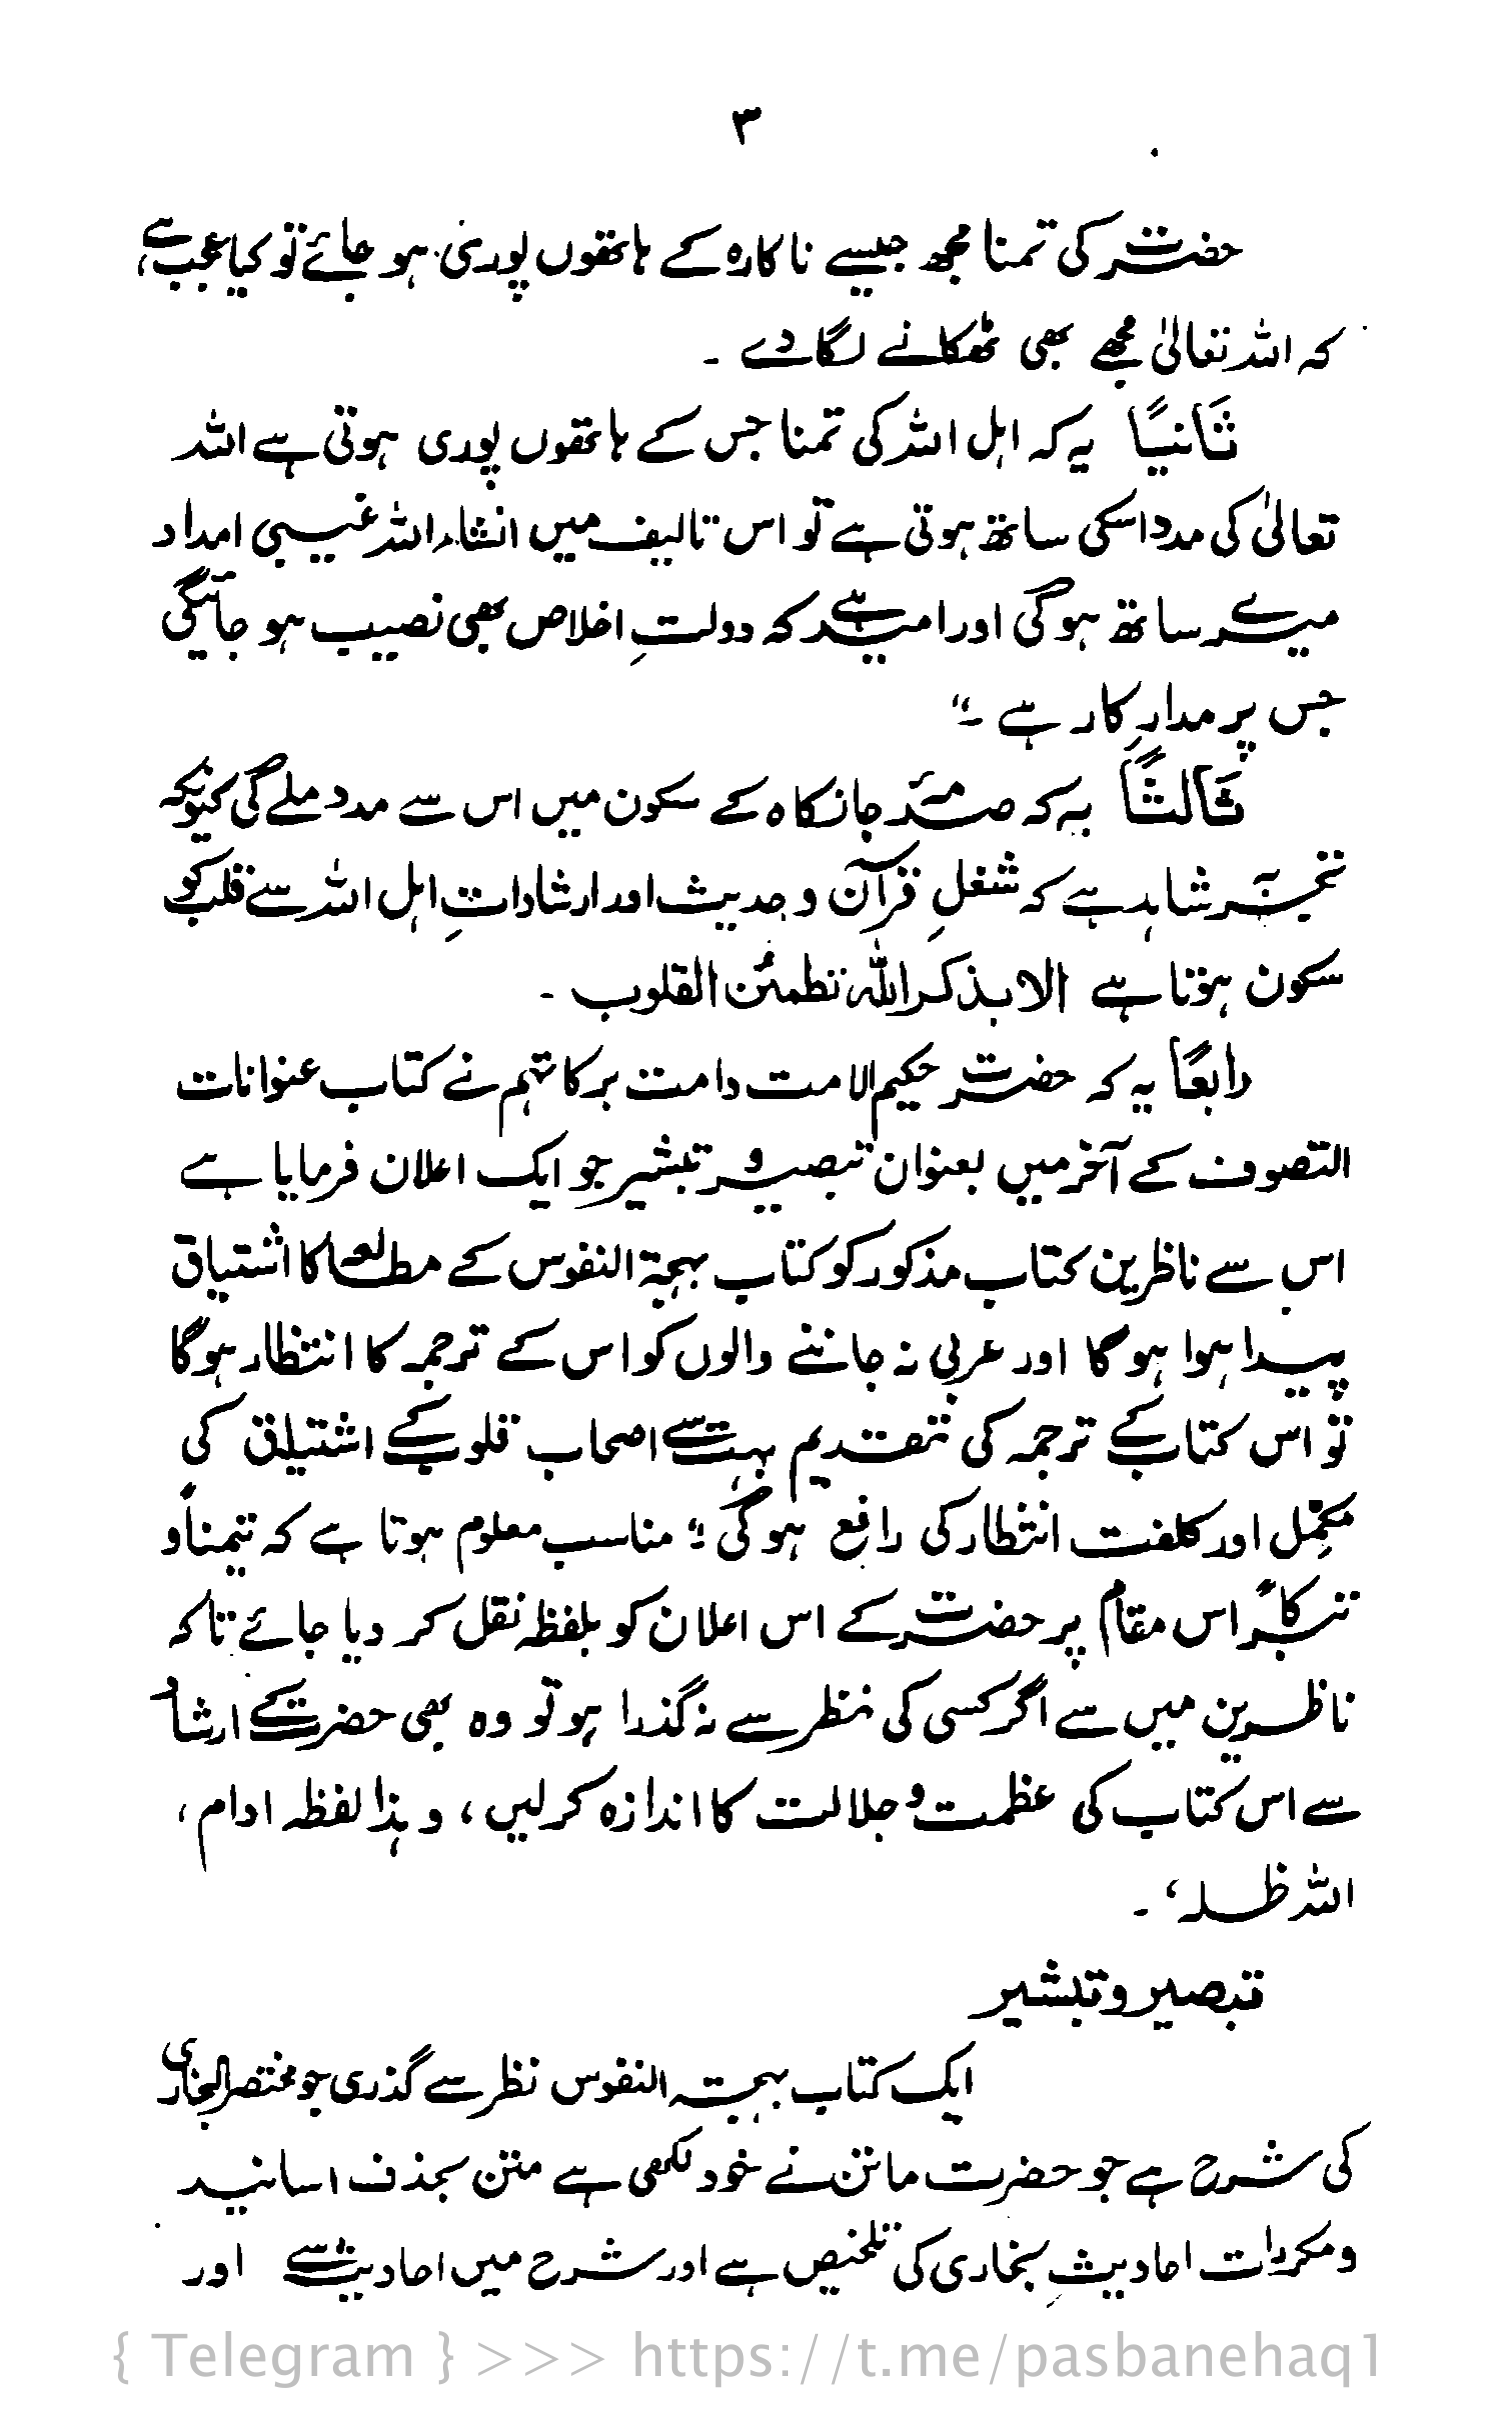 ۳
حضرت کی تمنا مجھ جیسے ناکارہ کے ہاتھوں پوری ہو جائے تو کیا عجب ہے،
کہ اللہ تعالیٰ مجھے بھی ٹھکانے لگا دے ۔
ثانیاً یہ کہ اہل اللہ کی تمنا جس کے ہاتھوں پوری ہوتی ہے اللہ
تعالیٰ کی مدد اسکی ساتھ ہوتی ہے تو اس تالیف میں انشاء اللہ غیبی امداد
میرے ساتھ ہوگی اور امید ہے کہ دولتِ اخلاص بھی نصیب ہو جائیگی
جس پر مدارِ کار ہے ۔“
ثالثاً یہ کہ صدمۂ جانکاہ کے سکون میں اس سے مدد ملے گی کیونکہ
تجربہ شاہد ہے کہ شغلِ قرآن و حدیث اور ارشاداتِ اہل اللہ سے قلب کو
سکون ہوتا ہے الا بذکر اللہ تطمئن القلوب ۔
رابعاً یہ کہ حضرت حکیم الامت دامت برکاتہم نے کتاب عنوانات
التصوف کے آخر میں بعنوان تبصیر و تبشیر جو ایک اعلان فرمایا ہے
اس سے ناظرین کتاب مذکور کو کتاب بہجۃ النفوس کے مطالعہ کا اشتیاق
پیدا ہوا ہوگا اور عربی نہ جاننے والوں کو اس کے ترجمہ کا انتظار ہوگا
تو اس کتاب کے ترجمہ کی تقدیم بہت سے اصحاب قلوب کے اشتیاق کی
مکمّل اور کلفت انتظار کی رافع ہوگی ؛“ مناسب معلوم ہوتا ہے کہ تیمناً و
تبرکاً اس مقام پر حضرت کے اس اعلان کو بلفظہ نقل کر دیا جائے تاکہ
ناظرین میں سے اگر کسی کی نظر سے نہ گذرا ہو تو وہ بھی حضرت کے ارشاد
سے اس کتاب کی عظمت و جلالت کا اندازہ کر لیں، و ہذا لفظہ ادام،
اللہ ظلہ، ۔
تبصیر و تبشیر
ایک کتاب بہجۃ النفوس نظر سے گذری جو مختصر البخاری
کی شرح ہے جو حضرت ماتن نے خود لکھی ہے متن بحذف اسانید
و مکررات احادیثِ بخاری کی تلخیص ہے اور شرح میں احادیث سے اور
{ Telegram } >>> https://t.me/pasbanehaq1